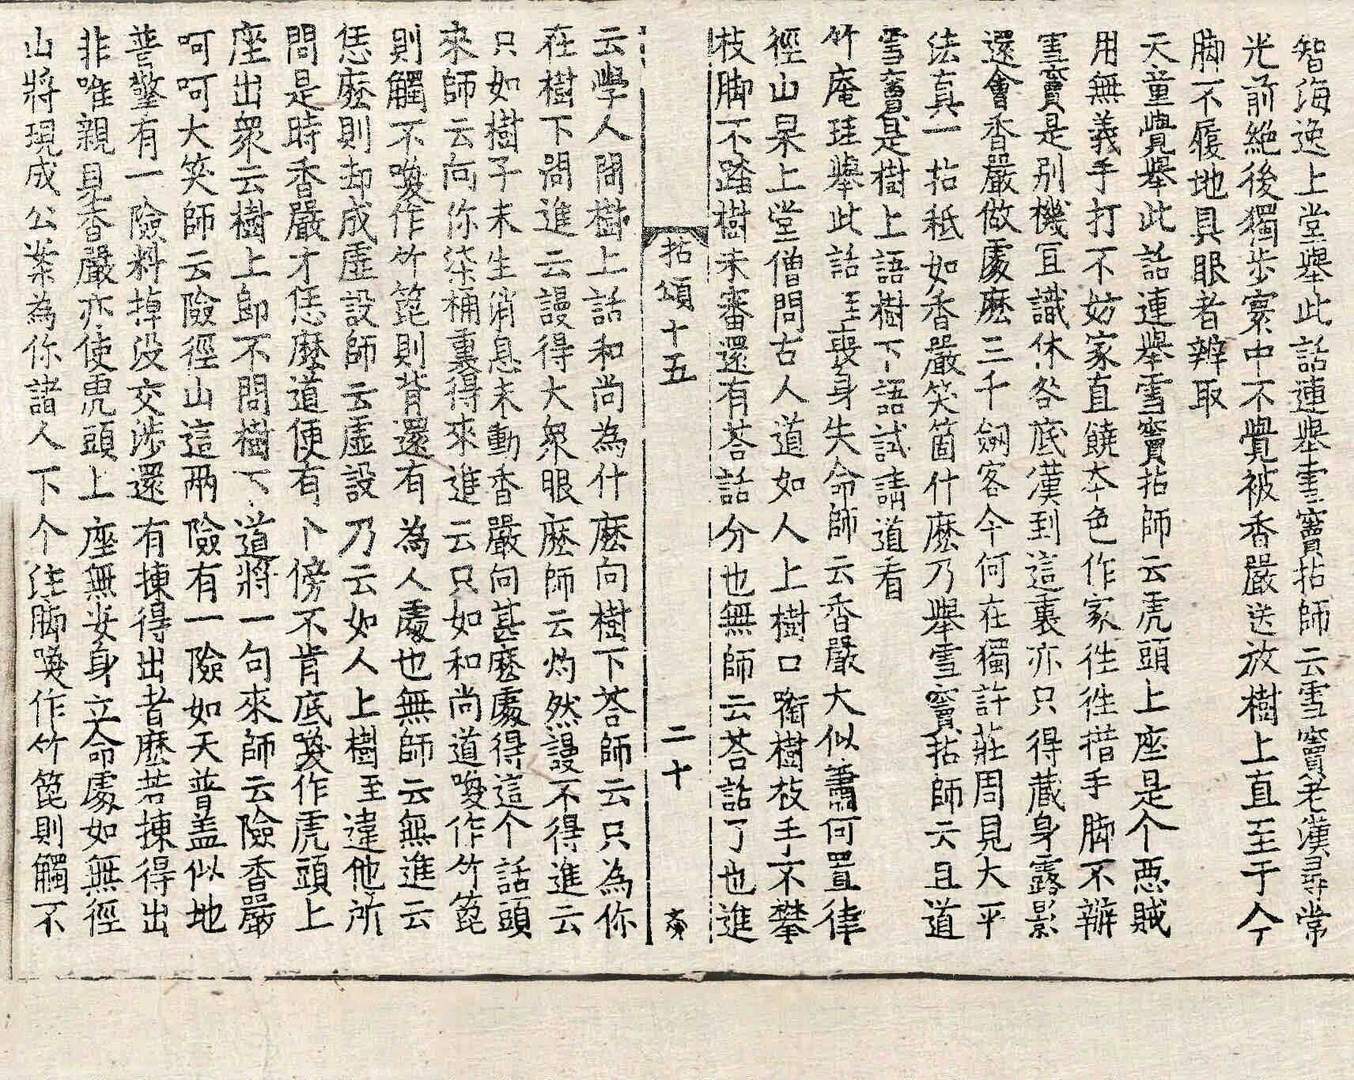 智海逸上堂舉此話連舉雪竇拈師云雪竇老漢尋常
光前絶後獨步寰中不覺被香嚴送放樹上直至于今
脚不履地具眼者辨取
天童覺舉此話連舉雪竇拈師云虎頭上座是个惡賊
用無義手打不妨家直饒本色作家徃徃措手脚不辦
雪竇是別機冝識休咎底漢到這裏亦只得蔵身露影
還會香嚴做處麽三千劒客今何在獨許莊周見大平
法真一拈秪如香嚴笑箇什麽乃舉雪竇拈師云且道
雪竇是樹上語樹下語試請道看
竹庵珪舉此話至喪身失命師云香嚴大似蕭何置律
徑山杲上堂僧問古人道如人上樹口銜樹枝手不攀
枝脚不踏樹未審還有荅話分也無師云荅話了也進
拈頌十五 二十
云學人問樹上話和尚為什麽向樹下荅師云只為你
在樹下問進云謾得大衆眼麽師云灼然謾不得進云
只如樹子未生消息未動香嚴向甚麽處得這个話頭
來師云向你漆桶裏得來進云只如和尚道喚作竹篦
則觸不喚作竹篦則背還有為人處也無師云無進云
恁麽則却成虛設師云虛設乃云如人上樹至違他所
問是時香嚴才恁麽道便有卜傍不肯底喚作虎頭上
座出衆云樹上即不問樹下道將一句來師云險香嚴
呵呵大笑師云險徑山這兩險有一險如天普盖似地
普擎有一險料掉没交渉還有揀得出者麽若揀得出
非唯親見香嚴亦使虎頭上座無安身立命處如無徑
山將現成公案為你諸人下个注脚喚作竹篦則觸不